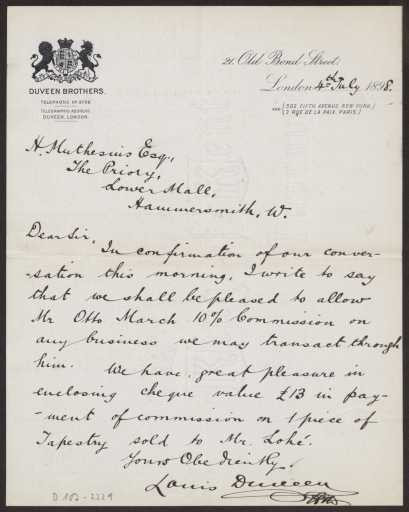 DUVEEN BROTHERS.
TELEGRAPHIC ADDRESS
DUVEEN, LONDON.
21, Old Bond Street,
London 4th July 1898.
AND (302, FIFTH AVENUE, NEW YORK.)
(2 RUE DE LA PAIX, PARIS.)
H. Muthesius Esq.,
The Priory,
Lower Mall,
Hammersmith, W.
Dear Sir,
In confirmation of our conver-
-sation this morning, I write to say
that we shall be pleased to allow
Mr Otto March 10% Commission on
any business we may transact through
him. We have great pleasure in
enclosing cheque value £13 in pay-
-ment of commission on 1 piece of
Tapestry sold to Mr. Lohé.
Yours Obediently,
Louis Duveen
D 102-2229